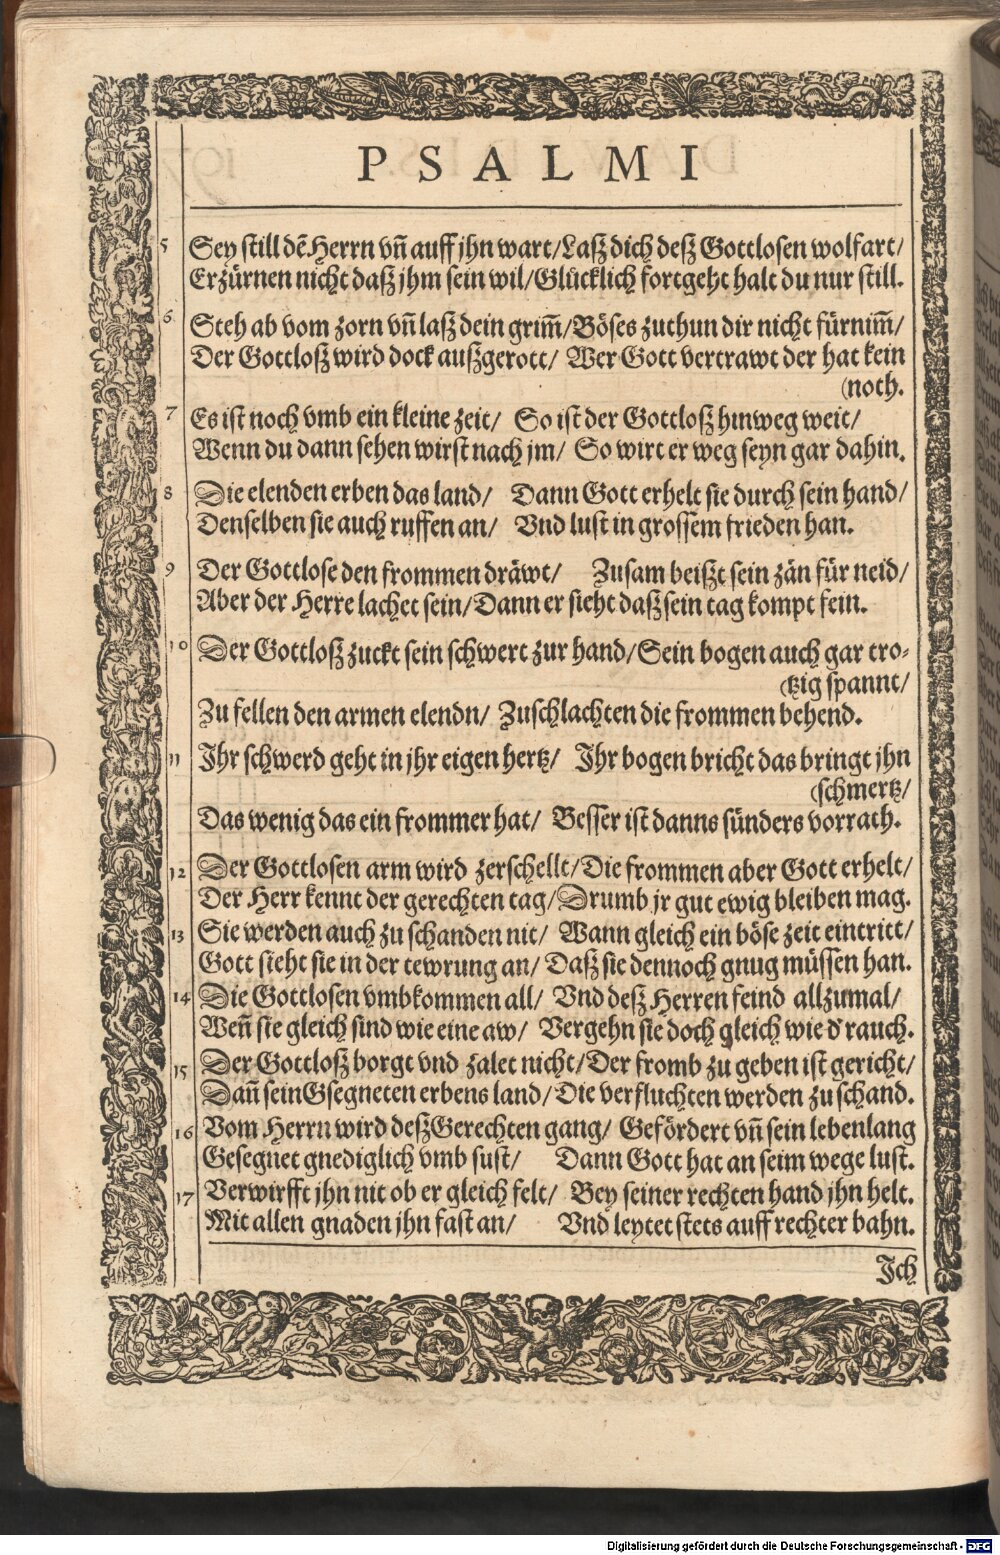 PSALMI
5 Sey still dẽ Herrn vñ auff jhn wart/Laſz dich deſz Gottlosen wolfart/
Erzürnen nicht daſz jhm sein wil/Glücklich fortgeht halt du nur still.
6 Steh ab vom zorn vñ laſz dein grim̃/Böses zuthun dir nicht fürnim̃/
Der Gottloſz wird dock auſzgerott/ Wer Gott vertrawt der hat kein
(noth.
7 Es ist noch vmb ein kleine zeit/ So ist der Gottloſz hinweg weit/
Wenn du dann sehen wirst nach jm/ So wirt er weg seyn gar dahin.
8 Die elenden erben das land/ Dann Gott erhelt sie durch sein hand/
Denselben sie auch ruffen an/ Vnd lust in grossem frieden han.
9 Der Gottlose den frommen dräwt/ Zusam beiſzt sein zän für neid/
Aber der Herre lachet sein/Dann er sieht daſz sein tag kompt fein.
10 Der Gottloſz zuckt sein schwert zur hand/Sein bogen auch gar tro-
(tzig spannt/
Zu fellen den armen elendn/ Zuschlachten die frommen behend.
11 Ihr schwerd geht in jhr eigen hertz/ Ihr bogen bricht das bringt jhn
(schmertz/
Das wenig das ein frommer hat/ Besser ist danns sünders vorrath.
12 Der Gottlosen arm wird zerschellt/Die frommen aber Gott erhelt/
Der Herr kennt der gerechten tag/Drumb jr gut ewig bleiben mag.
13 Sie werden auch zu schanden nit/ Wann gleich ein böse zeit eintritt/
Gott sieht sie in der tewrung an/ Daſz sie dennoch gnug müssen han.
14 Die Gottlosen vmbkommen all/ Vnd deſz Herren feind allzumal/
Weñ sie gleich sind wie eine aw/ Vergehn sie doch gleich wie d' rauch.
15 Der Gottloſz borgt vnd zalet nicht/Der fromb zu geben ist gericht/
Dañ sein Gsegneten erbens land/Die verfluchten werden zu schand.
16 Vom Herrn wird deſz Gerechten gang/ Gefördert vñ sein lebenlang
Gesegnet gnediglich vmb sust/ Dann Gott hat an seim wege lust.
17 Verwirfft jhn nit ob er gleich felt/ Bey seiner rechten hand jhn helt.
Mit allen gnaden jhn fast an/ Vnd leytet stets auff rechter bahn.
Ich
Digitalisierung gefördert durch die Deutsche Forschungsgemeinschaft - DFG